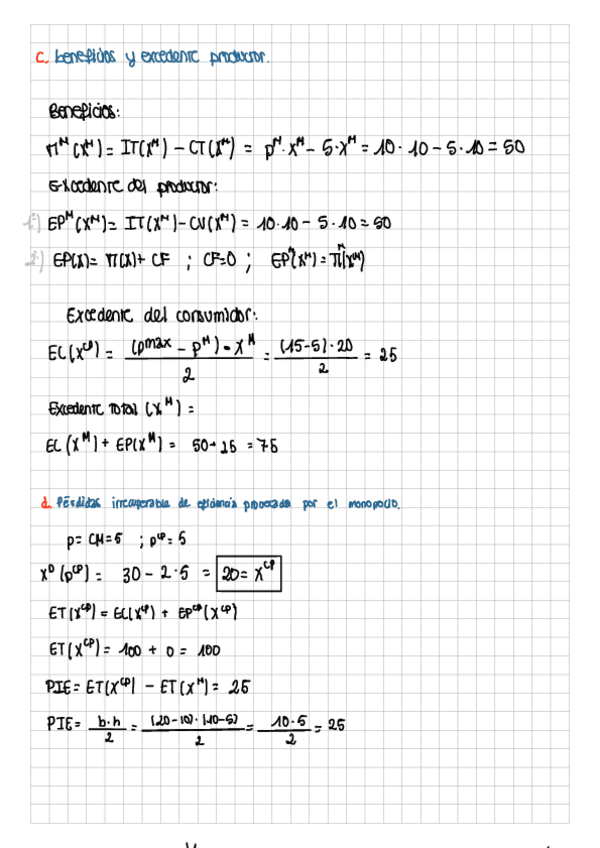 c. beneficios y excedente productor.
Beneficios:
π^M (X^M) = IT(X^M) - CT(X^M) = p^M · X^M - 5·X^M = 10·10 - 5·10 = 50
Excedente del productor:
1º) EP^M (X^M) = IT(X^M) - CV(X^M) = 10·10 - 5·10 = 50
2º) EP(X) = π(X) + CF ; CF=0 ; EP^M(X^M) = π^M(X^M)
Excedente del consumidor:
EC(X^CP) = (p^max - p^M) · X^M / 2 = (15-5)·20 / 2 = 25
Excedente Total (X^M) =
EC (X^M) + EP(X^M) = 50+25 = 75
d. Pérdidas irrecuperable de eficiencia provocada por el monopolio.
p = CM = 5 ; p^CP = 5
X^D (p^CP) = 30 - 2·5 = 20 = X^CP
ET(X^CP) = EC(X^CP) + EP^CP (X^CP)
ET(X^CP) = 100 + 0 = 100
PIE = ET(X^CP) - ET(X^M) = 25
PIE = b·h / 2 = (20-10)·(10-5) / 2 = 10·5 / 2 = 25